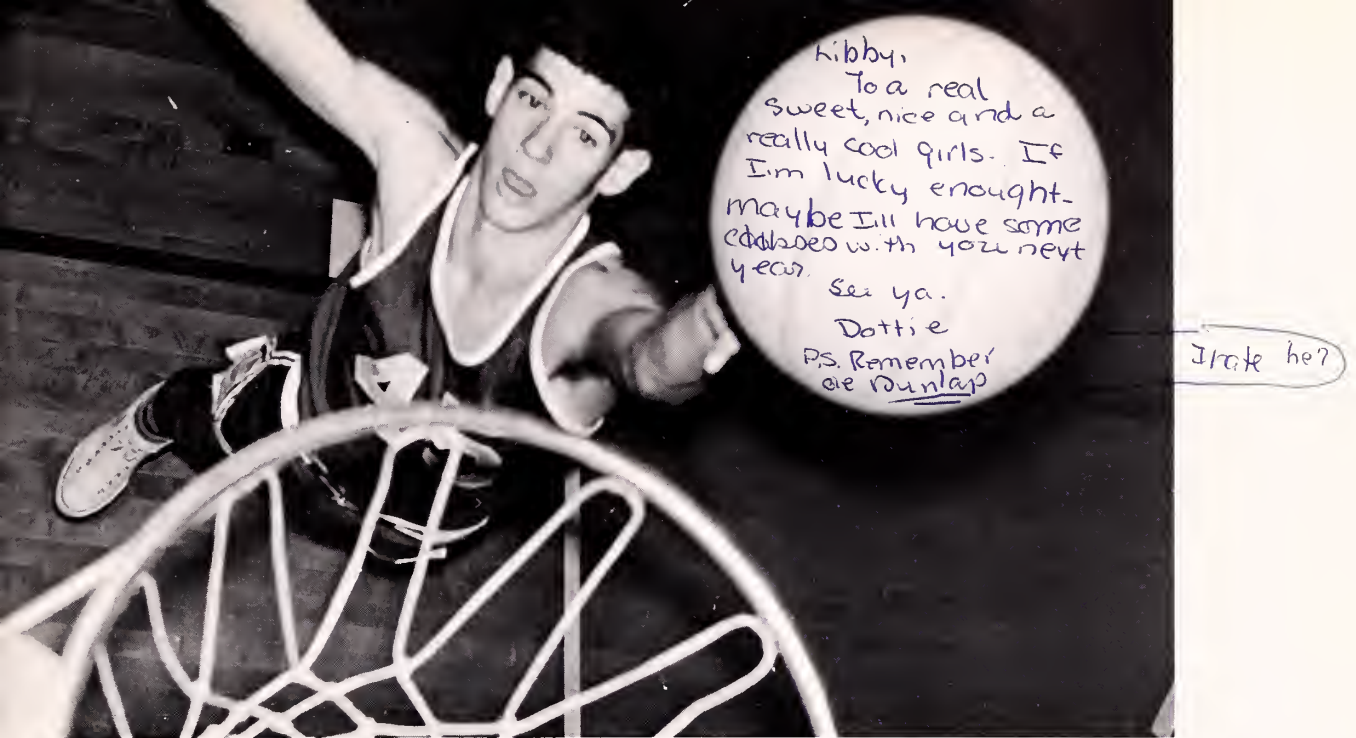 Libby,
To a real
sweet, nice and a
really cool girls. If
I'm lucky enought-
maybe I'll have some
with you next
year.
See ya.
Dottie
P.S. Remember
ole Dunlap
I rate he?